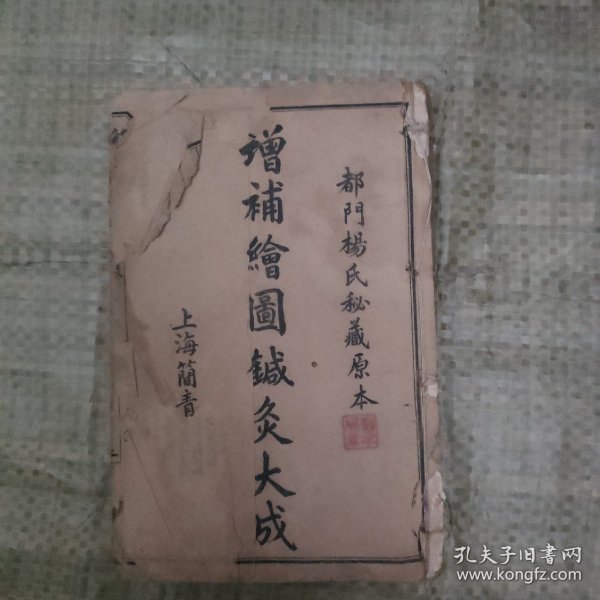 都門楊氏秘藏原本
增補繪圖鍼灸大成
上海簡青
孔夫子旧书网
www.kongfz.com